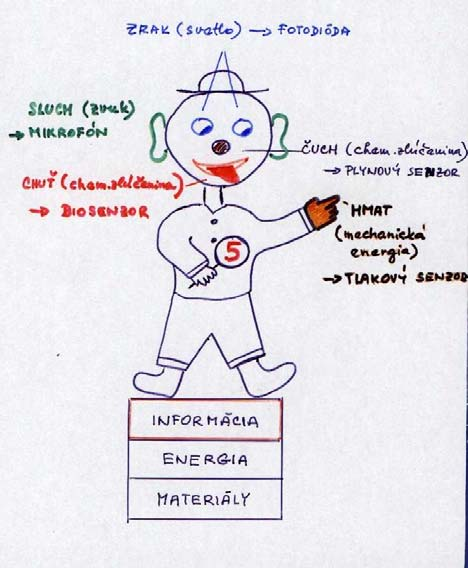 ZRAK (svetlo) → FOTODIÓDA
SLUCH (zvuk)
→ MIKROFÓN
ČUCH (chem. zlúčenina)
→ PLYNOVÝ SENZOR
CHUŤ (chem. zlúčenina)
→ BIOSENZOR
HMAT
(mechanická
energia)
→ TLAKOVÝ SENZOR
5
INFORMÁCIA
ENERGIA
MATERIÁLY